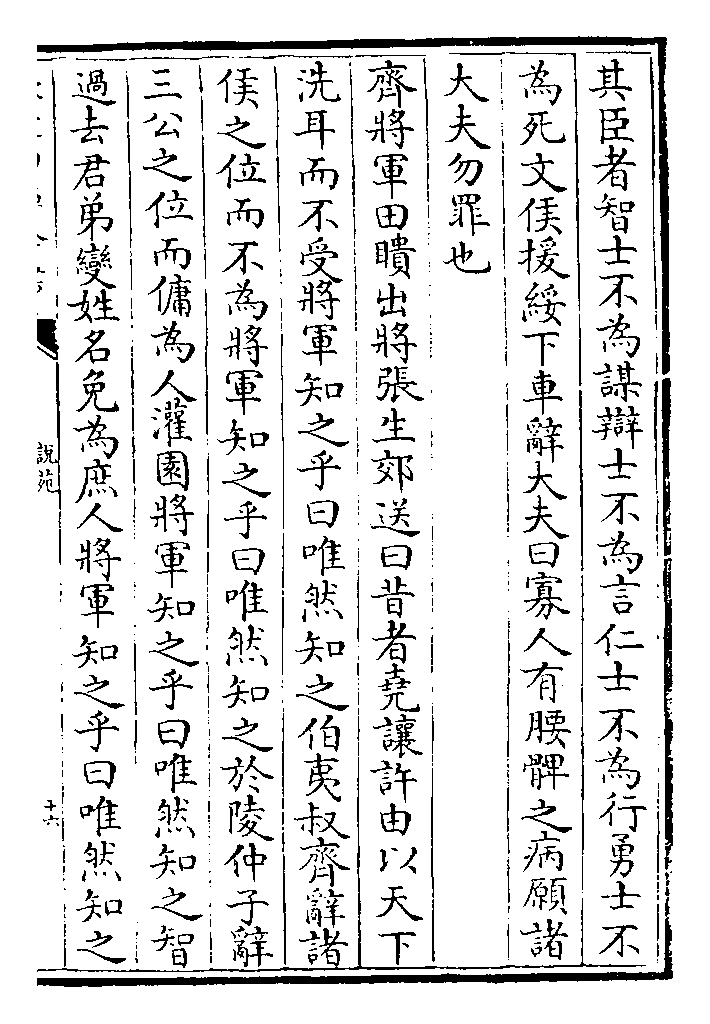 其臣者智士不為謀辯士不為言仁士不為行勇士不
為死文侯援綏下車辭大夫曰寡人有腰髀之病願諸
大夫勿罪也
齊將軍田瞶出將張生郊送曰昔者堯讓許由以天下
洗耳而不受將軍知之乎曰唯然知之伯夷叔齊辭諸
侯之位而不為將軍知之乎曰唯然知之於陵仲子辭
三公之位而傭為人灌園將軍知之乎曰唯然知之智
過去君弟變姓名免為庶人將軍知之乎曰唯然知之
說苑
十六